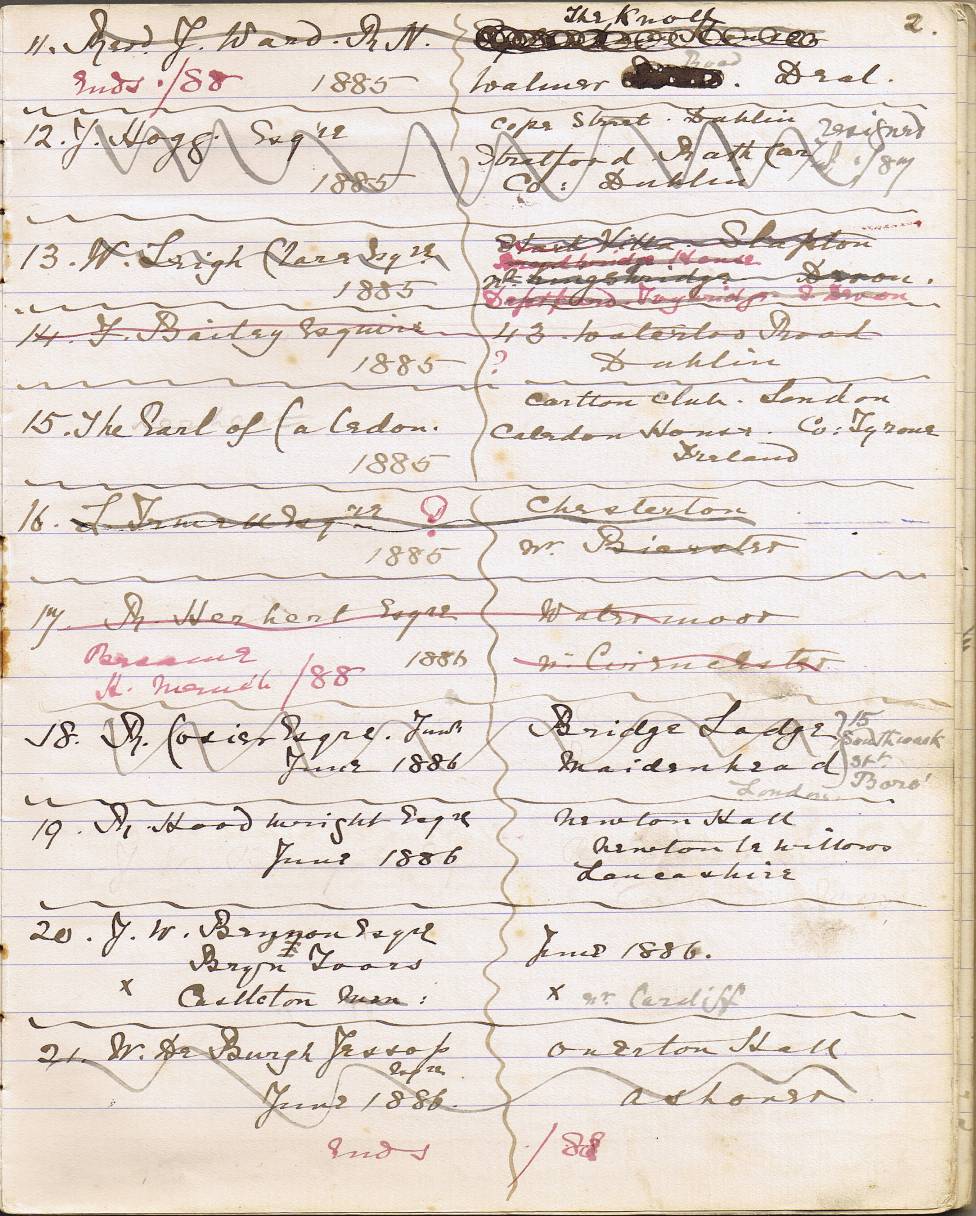 2.
11. Revd. J. Ward. R N.
The Knoll
Ends /88 1885
Walmer Road. Deal.
12. J. Hogg. Esq're
1885
Cope Street. Dublin
Stratford Rath Gar
Co: Dublin
resigned /87
13. W. Leigh Clare Esqre
1885
Start Villa. Slapton
House
nr. Kingsbridge Devon.
Devon
14. F. Bailey Esquire
1885
43 Waterloo Road
? Dublin
15. The Earl of Caledon.
1885
Carlton Club. London
Caledon House. Co: Tyrone
Ireland
16. Esqre ?
1885
Chesterton
nr. Bicester
17. R. Herbert Esqre
1886
/88
Watermoor
nr Cirencester
18. R. Cosier Esqre. Junr
June 1886
Bridge Lodge
Maidenhead
15
Southwark
Stt
Boro'
London
19. R. Hood Wright Esqre
June 1886
Newton Hall
Newton le Willows
Lancashire
20. J. W. Brynon Esqre
Bryn
x Castleton Mon:
June 1886.
x nr. Cardiff
21. W. De Burgh Jessop
Esqre
June 1886.
Overton Hall
Ashover
Ends /88